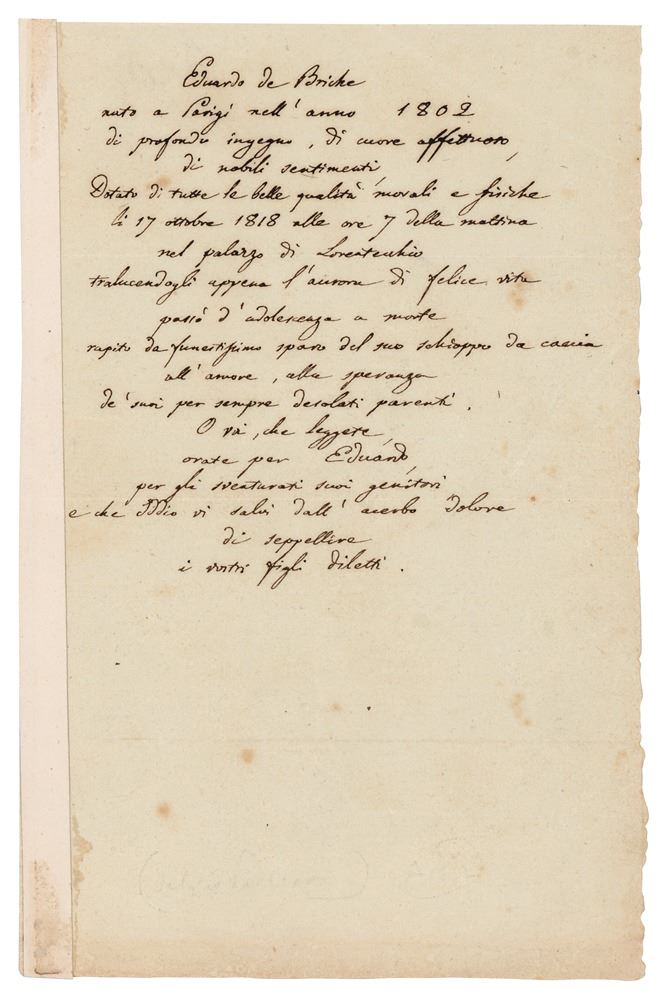 Eduardo de Briche
nato a Parigi nell' anno 1802
di profondo ingegno, di cuore affettuoso,
di nobili sentimenti,
Dotato di tutte le belle qualità morali e fisiche
li 17 ottobre 1818 alle ore 7 della mattina
nel palazzo di Lorentecchio
tralucendogli appena l'aurora di felice vita
passò d'adolescenza a morte
rapito da funestissimo sparo del suo schioppo da caccia
all' amore, alla speranza
de' suoi per sempre desolati parenti.
O voi, che leggete,
orate per Eduardo,
per gli sventurati suoi genitori
e che Iddio vi salvi dall' acerbo dolore
di seppellire
i vostri figli diletti.